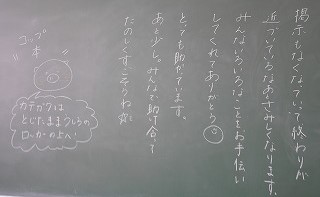 掲示もなくなっていて終わりが
近づいているなあさみしくなります。
みんないろいろなことをお手伝い
してくれてありがとう
とっても助かっています。
あと少し。みんなで助け合って
たのしくすごそうね
コップ
本
カデガクは
とじたままうしろの
ロッカーの上へ!